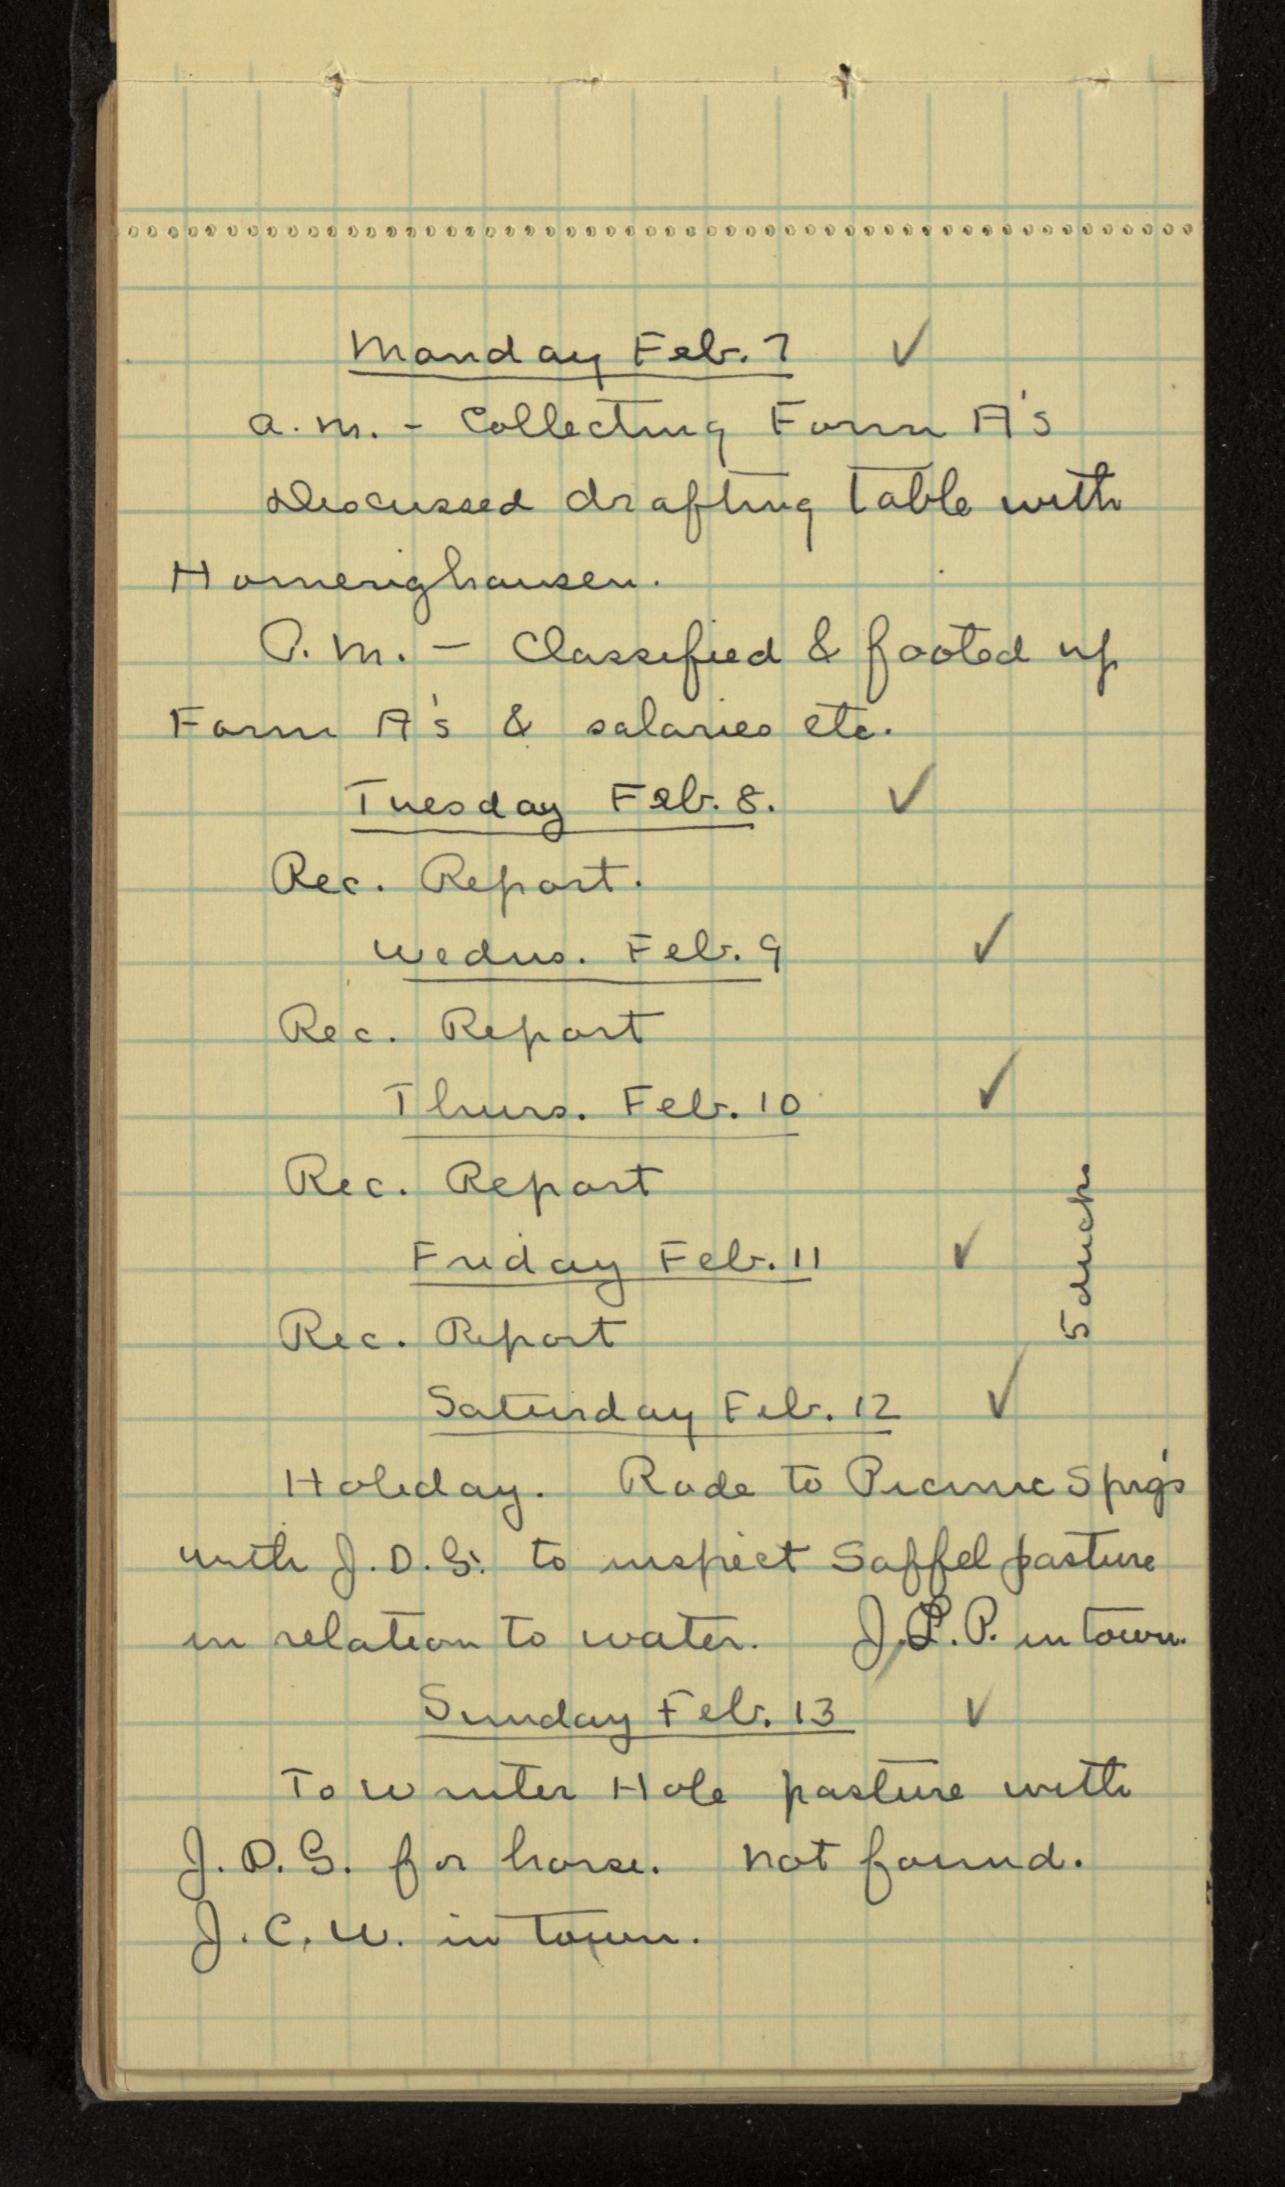 Monday Feb. 7 ✓
a.m. - Collecting Form A's
Discussed drafting table with
Homerighausen.
P.m. - Classified & footed up
Form A's & salaries etc.
Tuesday Feb. 8. ✓
Rec. Report.
Wedns. Feb. 9 ✓
Rec. Report
Thurs. Feb. 10 ✓
Rec. Report
Friday Feb. 11 ✓
5 ducks
Rec. Report
Saturday Feb. 12 ✓
Holiday. Rode to Picnic Sprg's
with J.D.G. to inspect Saffel pasture
in relation to water. J.L.P. in town.
Sunday Feb. 13 ✓
To Winter Hole pasture with
J.D.G. for horse. Not found.
J.C.W. in town.